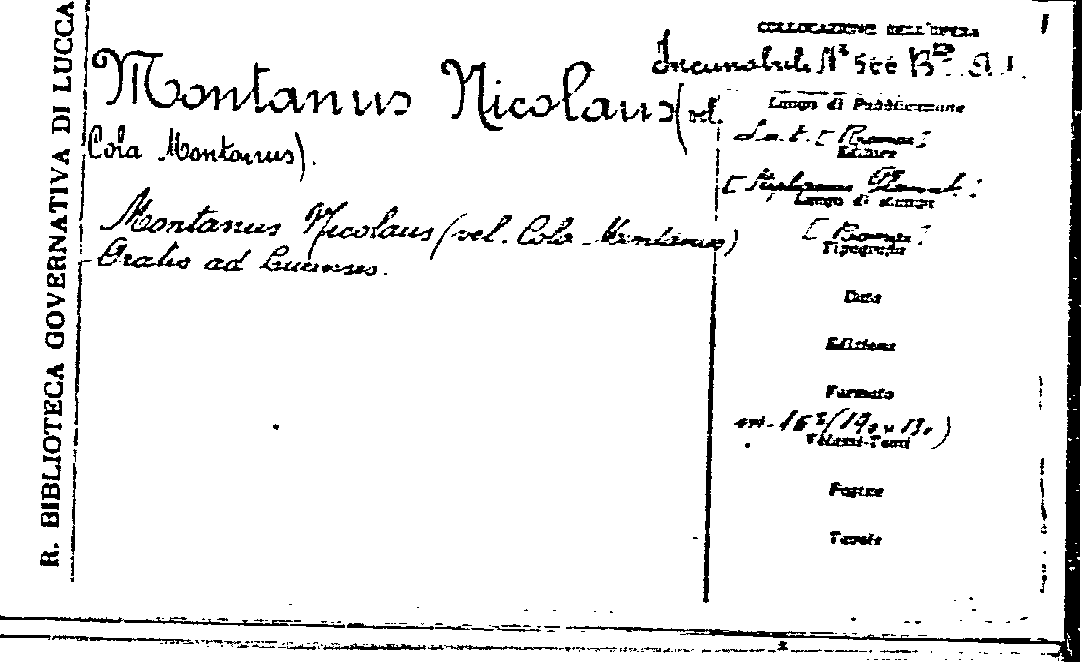 R. BIBLIOTECA GOVERNATIVA DI LUCCA
Montanus Nicolaus (vel.
Cola Montanus).
Montanus Nicolaus (vel. Cola Montanus)
Oratio ad Lucenses.
COLLOCAZIONE DELL'OPERA
1
Incunabuli
Luogo di Pubblicazione
[Roma]
Editore
[Stephanus Plannck]
Luogo di stampa
[Roma]
Tipografia
Data
Edizione
Formato
Volumi-Tomi
Pagine
Tavole